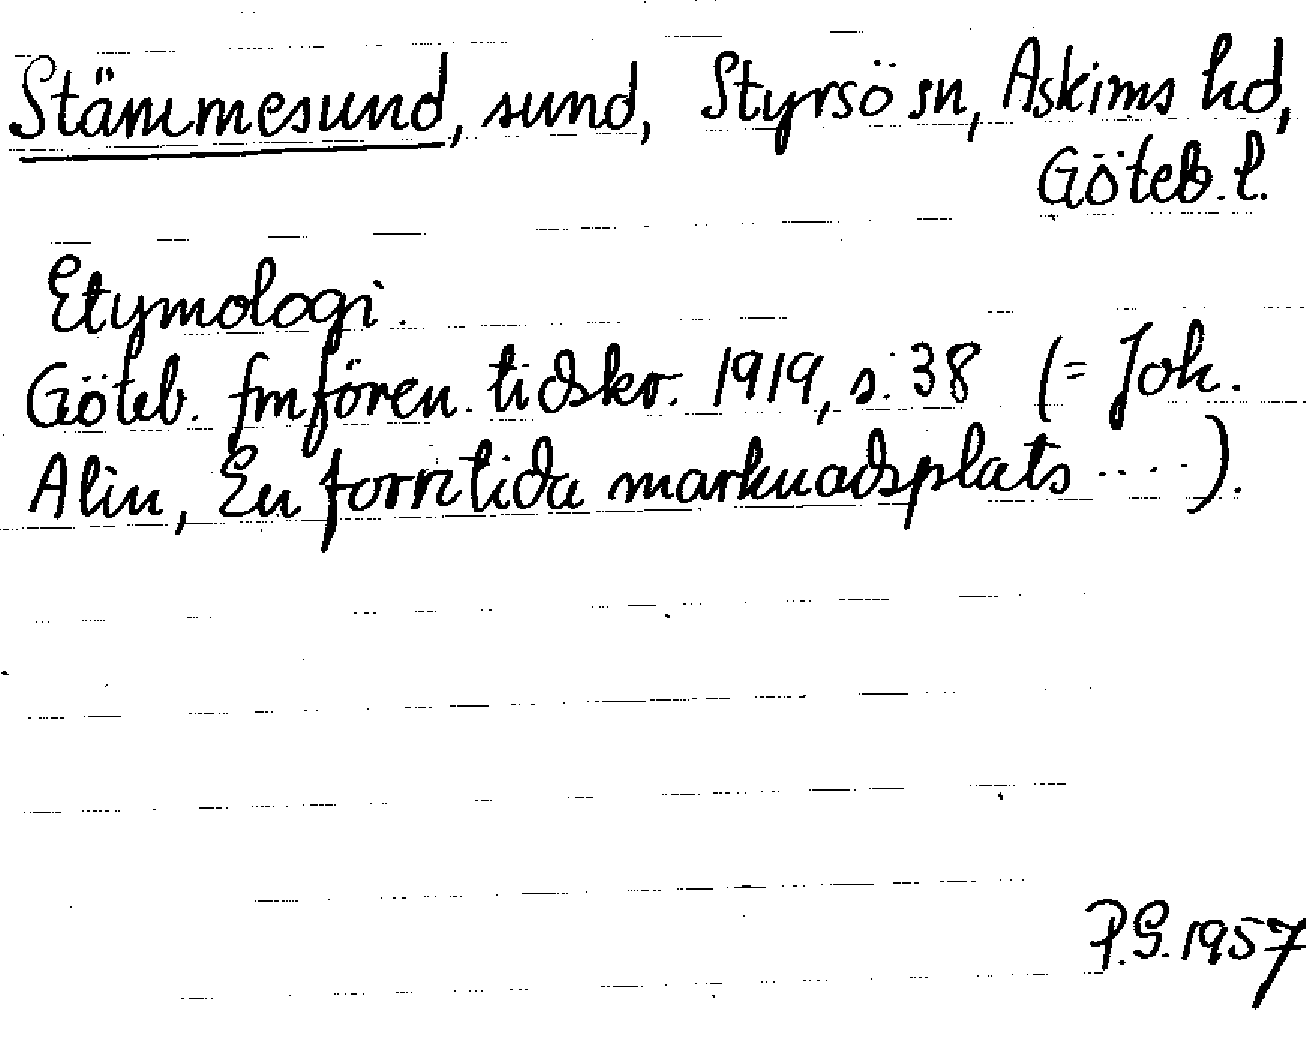 Stämmesund, sund, Styrsö sn, Askims hd,
Göteb. l.
Etymologi.
Göteb. fmfören. tidskr. 1919, s. 38 (= Joh.
Alin, En forntida marknadsplats ....).
P.G. 1957